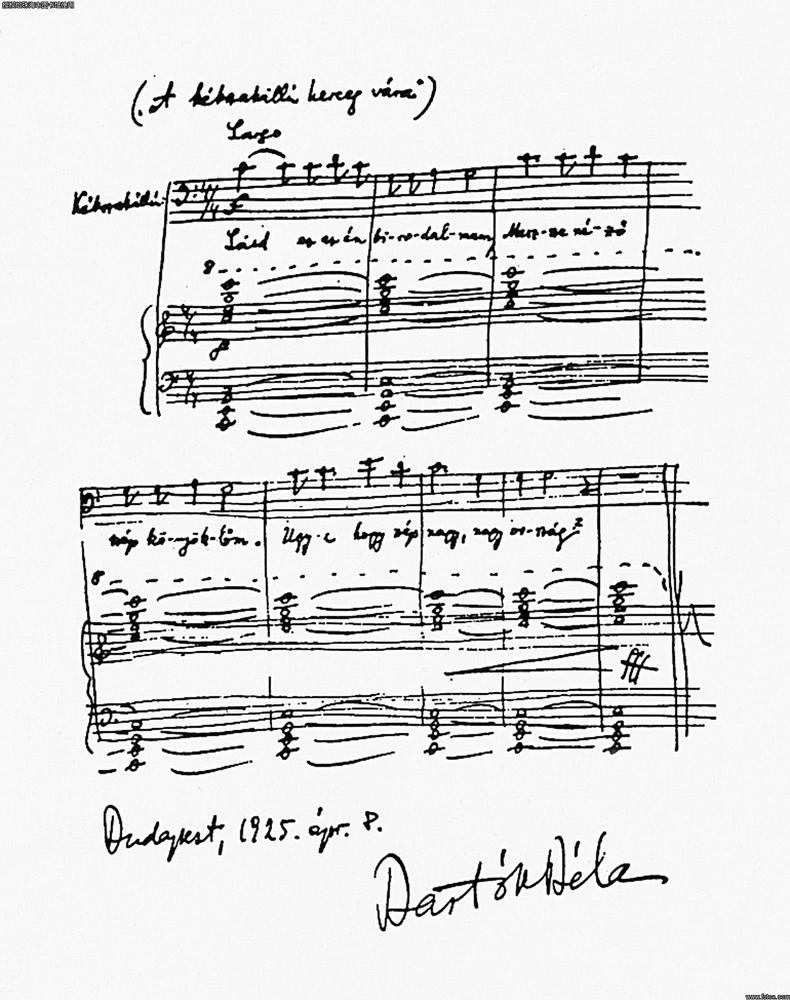 ("A kékszakállú herceg vára")
Largo
Kékszakállú:
4/4 F
Lásd ez az én bi-ro-dal-mam, Mesz-sze né-ző
8
4/4
4/4
szép kö-nyök-lőm. Ugy-e hogy szép nagy, nagy or-szág?
8
fff
Budapest, 1925. ápr. 8.
Bartók Béla
www.fotoe.com